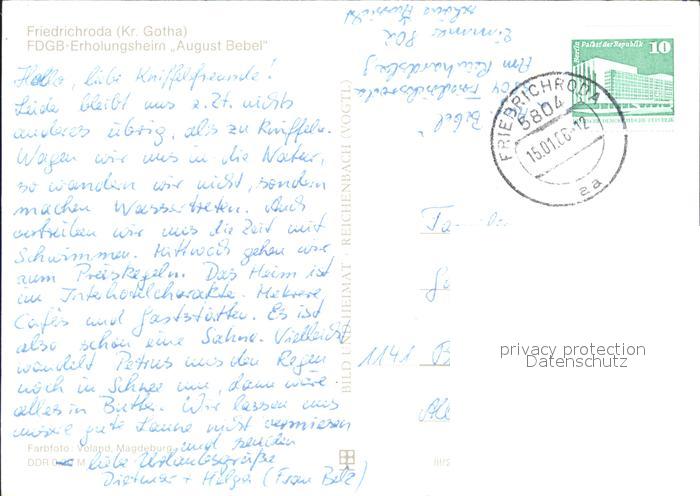 Friedrichroda (Kr. Gotha)
FDGB-Erholungsheim „August Bebel"
Hallo, liebe Kniffelfreunde!
Leider bleibt uns z. Zt. nichts
anderes übrig, als zu kniffeln.
Wagen wir uns in die Natur,
so wandern wir nicht, sondern
machen Wassertreten. Auch
vertreiben wir uns die Zeit mit
Schwimmen. Mittwoch gehen wir
zum Preiskegeln. Das Heim ist
im Interhotelcharakter. Mehrere
Cafés und Gaststätten. Es ist
also schon eine Sahne. Vielleicht
wandelt Petrus uns den Regen
noch in Schnee um, dann wäre
alles in Butter. Wir lassen uns
unsere gute Laune nicht vermiesen
und senden
liebe Urlaubsgrüße
Dietmar + Helga (Frau Belz)
Farbfoto: Voland, Magdeburg
DDR M
BILD UND HEIMAT · REICHENBACH (VOGTL)
schöne Aussicht
Zimmer
Am Reinhardsberg
Friedrichroda
Bebel"
Berlin Palast der Republik 10
FRIEDRICHRODA
5804
15.01.86-12
aa
1141 B
privacy protection
Datenschutz